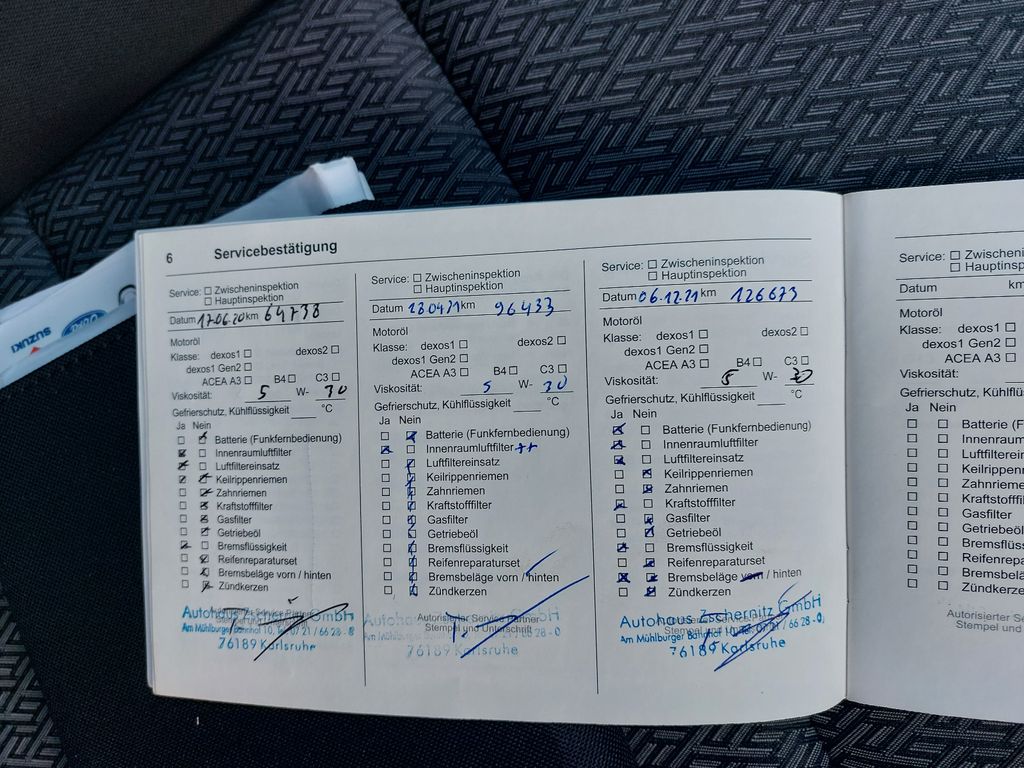 6 Servicebestätigung
Service: ☐ Zwischeninspektion
☐ Hauptinspektion
Datum 17.06.20 km 64738
Motoröl
Klasse: dexos1 ☐ dexos2 ☐
dexos1 Gen2 ☐
ACEA A3 ☐ B4 ☐ C3 ☐
Viskosität: 5 W- 30
Gefrierschutz, Kühlflüssigkeit ____ °C
Ja Nein
☐ ☒ Batterie (Funkfernbedienung)
☒ ☐ Innenraumluftfilter
☒ ☐ Luftfiltereinsatz
☒ ☒ Keilrippenriemen
☐ ☒ Zahnriemen
☐ ☒ Kraftstofffilter
☐ ☒ Gasfilter
☐ ☒ Getriebeöl
☒ ☐ Bremsflüssigkeit
☐ ☒ Reifenreparaturset
☐ ☒ Bremsbeläge vorn / hinten
☐ ☒ Zündkerzen
Autohaus Zschernitz GmbH
Am Mühlburger Bahnhof 10, Tel. 07 21 / 66 28 - 0
76189 Karlsruhe
Service: ☐ Zwischeninspektion
☐ Hauptinspektion
Datum km 96433
Motoröl
Klasse: dexos1 ☐ dexos2 ☐
dexos1 Gen2 ☐
ACEA A3 ☐ B4 ☐ C3 ☐
Viskosität: 5 W- 30
Gefrierschutz, Kühlflüssigkeit ____ °C
Ja Nein
☐ ☒ Batterie (Funkfernbedienung)
☒ ☐ Innenraumluftfilter ++
☐ ☒ Luftfiltereinsatz
☐ ☒ Keilrippenriemen
☐ ☒ Zahnriemen
☐ ☒ Kraftstofffilter
☐ ☒ Gasfilter
☐ ☒ Getriebeöl
☐ ☒ Bremsflüssigkeit
☐ ☒ Reifenreparaturset
☐ ☒ Bremsbeläge vorn / hinten
☐ ☒ Zündkerzen
Autorisierter Service Partner
Stempel und Unterschrift
76189 Karlsruhe
Service: ☐ Zwischeninspektion
☐ Hauptinspektion
Datum 06.12.21 km 126673
Motoröl
Klasse: dexos1 ☐ dexos2 ☐
dexos1 Gen2 ☐
ACEA A3 ☐ B4 ☐ C3 ☐
Viskosität: 5 W- 30
Gefrierschutz, Kühlflüssigkeit ____ °C
Ja Nein
☒ ☐ Batterie (Funkfernbedienung)
☒ ☐ Innenraumluftfilter
☒ ☐ Luftfiltereinsatz
☐ ☒ Keilrippenriemen
☐ ☒ Zahnriemen
☒ ☐ Kraftstofffilter
☐ ☒ Gasfilter
☐ ☒ Getriebeöl
☒ ☐ Bremsflüssigkeit
☐ ☒ Reifenreparaturset
☒ ☒ Bremsbeläge vorn / hinten
☐ ☒ Zündkerzen
Autohaus Zschernitz GmbH
Am Mühlburger Bahnhof 10, Tel. 07 21 / 66 28 - 0
76189 Karlsruhe
Service: ☐ Zwischeninsp
☐ Hauptinsp
Datum km
Motoröl
Klasse: dexos1 ☐
dexos1 Gen2 ☐
ACEA A3 ☐
Viskosität:
Gefrierschutz, Kühlflü
Ja Nein
☐ ☐ Batterie (Fun
☐ ☐ Innenraum
☐ ☐ Luftfilterein
☐ ☐ Keilrippenri
☐ ☐ Zahnrieme
☐ ☐ Kraftstofffil
☐ ☐ Gasfilter
☐ ☐ Getriebeöl
☐ ☐ Bremsflüss
☐ ☐ Reifenrepa
☐ ☐ Bremsbelä
☐ ☐ Zündkerze
Autorisierter
Stempel und
SUZUKI